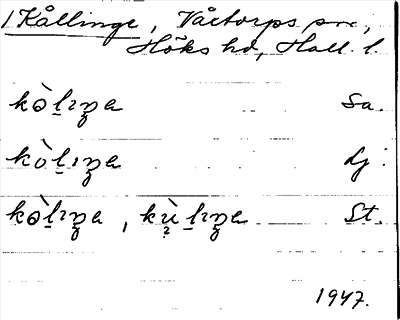 1 Kållinge, Vårtorps sn,
Höks hd, Hall. l.
kòlıŋa Sa.
kòlıŋa dj.
kòlıŋa, kùlıŋa St.
1947.